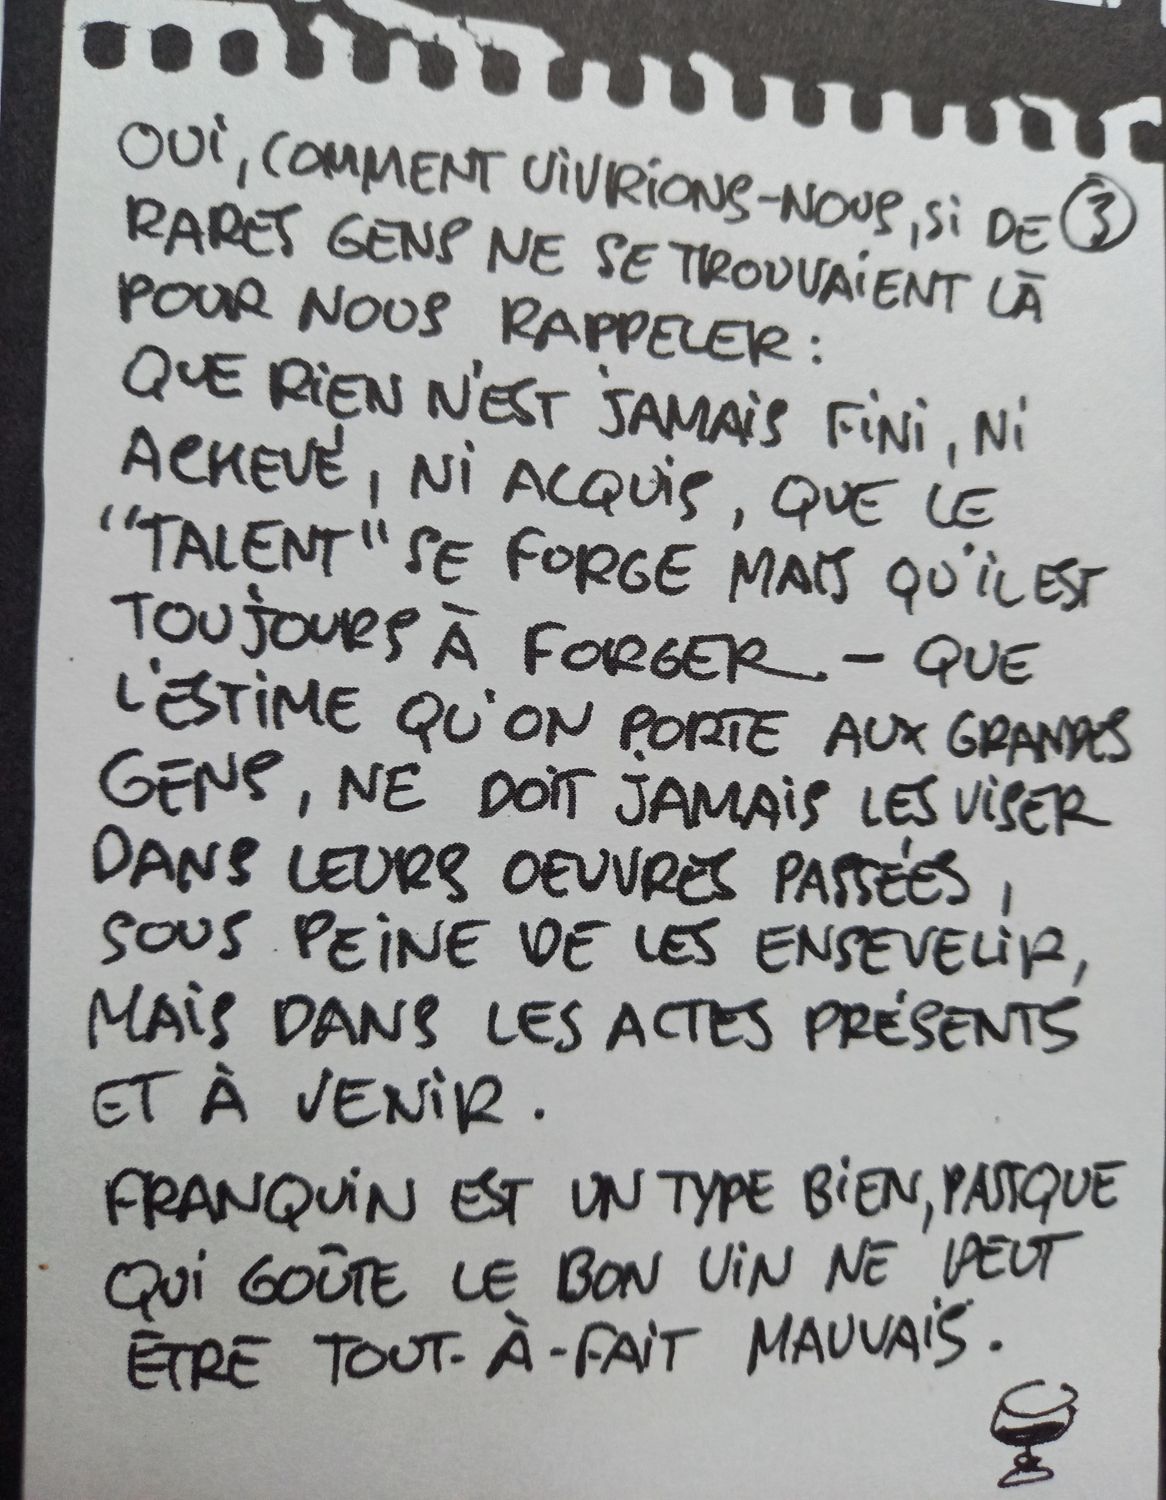 OUI, COMMENT VIVRIONS-NOUS, SI DE ③
RARES GENS NE SE TROUVAIENT LÀ
POUR NOUS RAPPELER :
QUE RIEN N'EST JAMAIS FINI, NI
ACHEVÉ, NI ACQUIS, QUE LE
"TALENT" SE FORGE MAIS QU'IL EST
TOUJOURS À FORGER. - QUE
L'ESTIME QU'ON PORTE AUX GRANDES
GENS, NE DOIT JAMAIS LES VISER
DANS LEURS OEUVRES PASSÉES,
SOUS PEINE DE LES ENSEVELIR,
MAIS DANS LES ACTES PRÉSENTS
ET À VENIR.
FRANQUIN EST UN TYPE BIEN, PASSQUE
QUI GOÛTE LE BON VIN NE PEUT
ÊTRE TOUT-À-FAIT MAUVAIS.